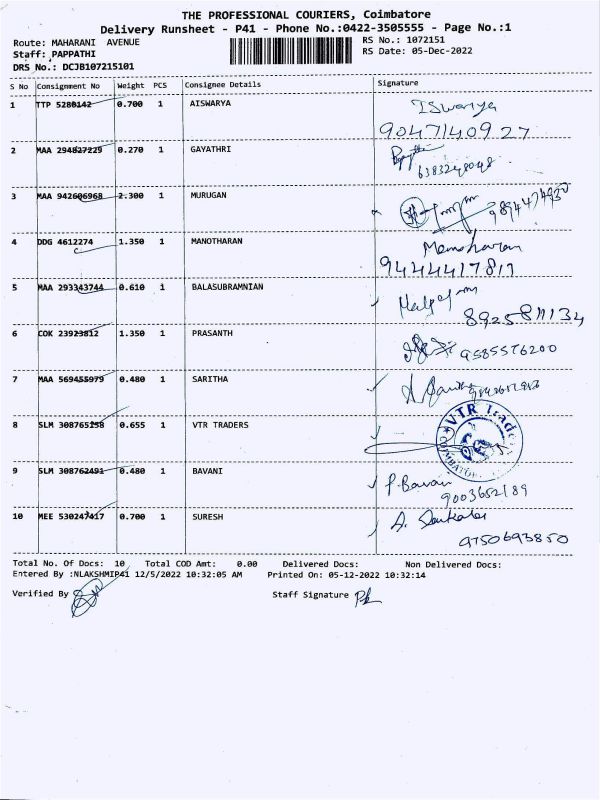 THE PROFESSIONAL COURIERS, Coimbatore
Delivery Runsheet - P41 - Phone No.:0422-3505555 - Page No.:1
Route: MAHARANI AVENUE RS No.: 1072151
Staff: PAPPATHI RS Date: 05-Dec-2022
DRS No.: DCJB107215101
S No Consignment No Weight PCS Consignee Details Signature
1 TTP 5280142 0.700 1 AISWARYA ISwarya
9047140927
2 MAA 294827229 0.270 1 GAYATHRI
6383248048
3 MAA 942606968 2.300 1 MURUGAN
4 DDG 4612274 1.350 1 MANOTHARAN Manoharan
9444417817
5 MAA 293343744 0.610 1 BALASUBRAMNIAN
8925811134
6 COK 23923812 1.350 1 PRASANTH 9585576200
7 MAA 569455979 0.480 1 SARITHA
8 SLM 308765158 0.655 1 VTR TRADERS VTR
9 SLM 308762491 0.480 1 BAVANI P. Bavani
9003652189
10 MEE 530247417 0.700 1 SURESH
9750693850
Total No. Of Docs: 10 Total COD Amt: 0.00 Delivered Docs: Non Delivered Docs:
Entered By :NLAKSHMIP41 12/5/2022 10:32:05 AM Printed On: 05-12-2022 10:32:14
Verified By Staff Signature